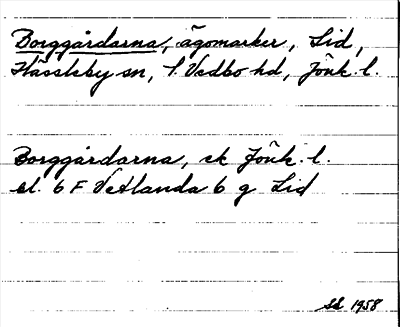 Borggårdarna, ägomarker, Lid,
Hässleby sn, S. Vedbo hd, Jönk. l.
Borggårdarna, ek Jönk. l.
bl. 6 F Vetlanda 6 g Lid
Sd 1958